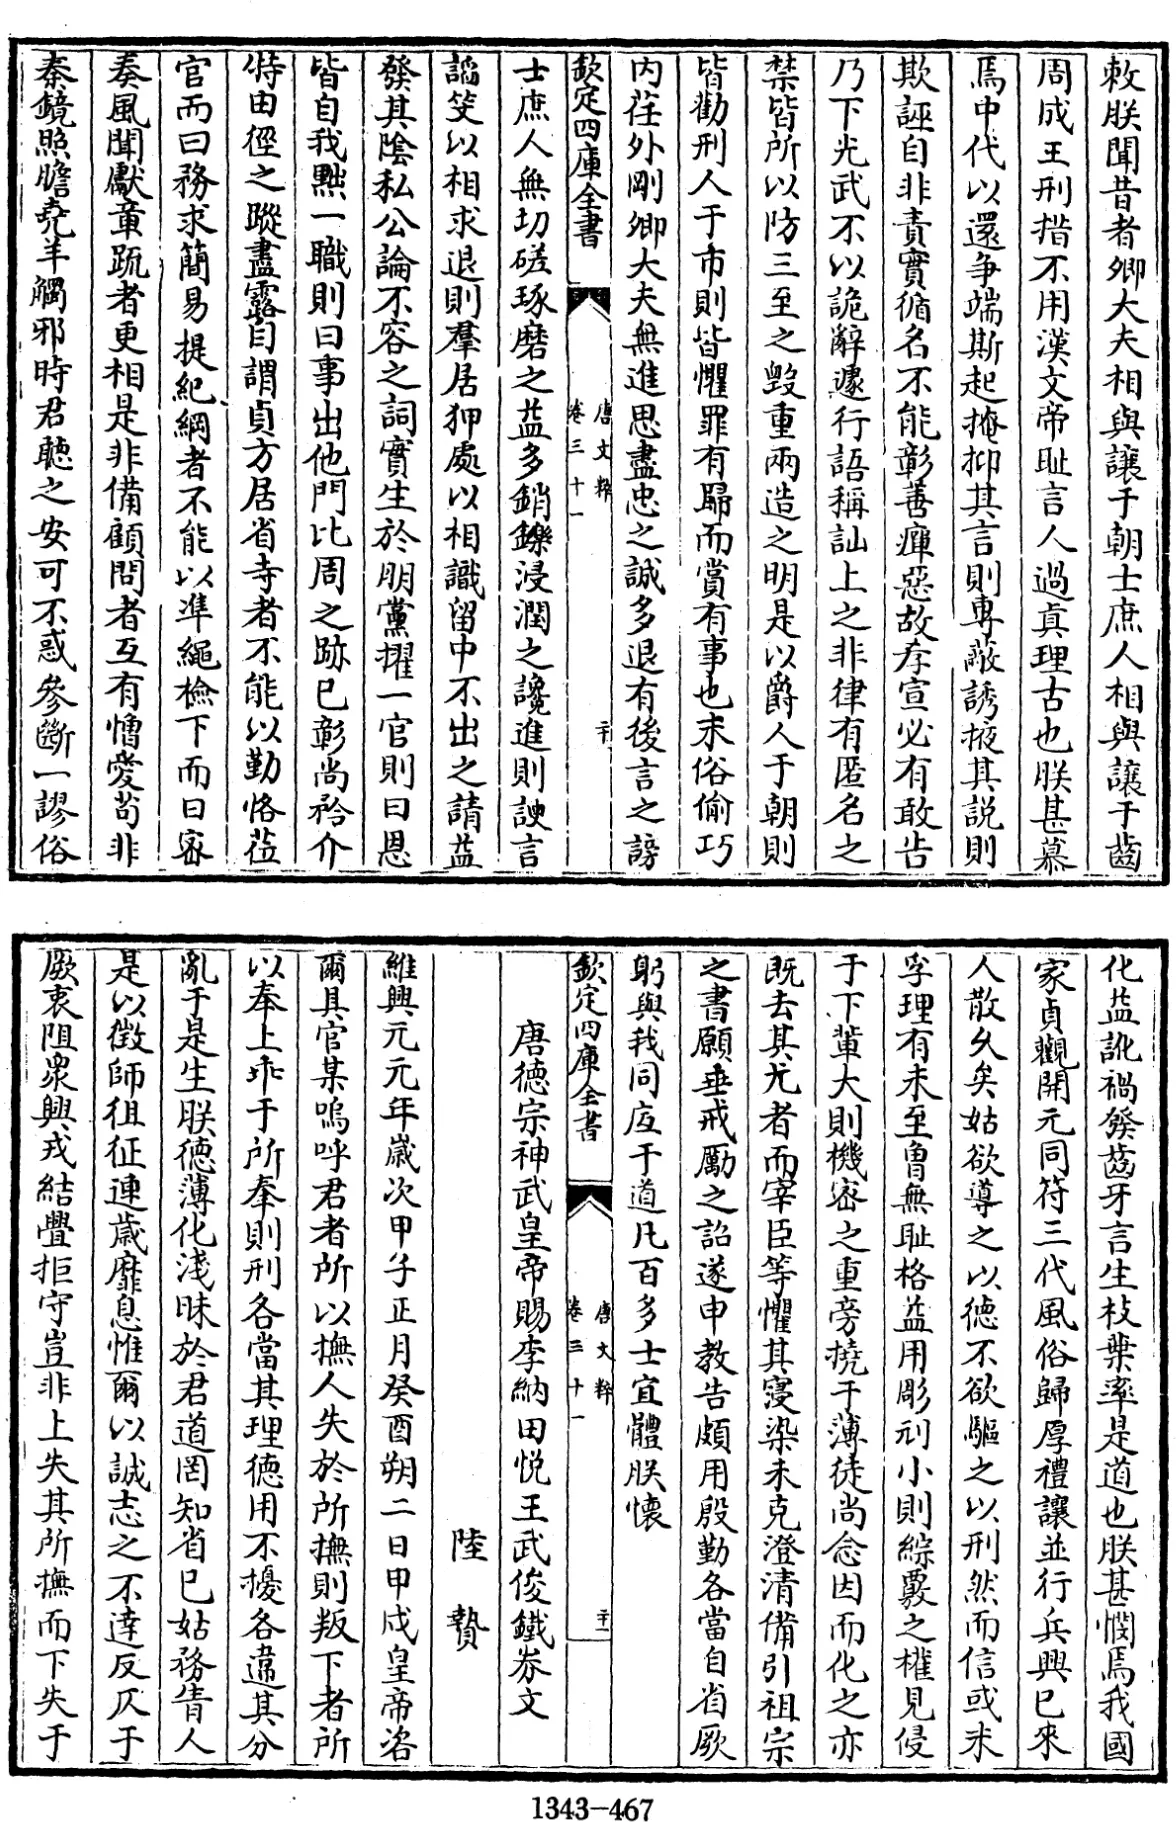 敕朕聞昔者卿大夫相與讓于朝士庶人相與讓于齒
周成王刑措不用漢文帝恥言人過真理古也朕甚慕
焉中代以還争端斯起掩抑其言則專蔽誘掖其説則
欺誣自非責實循名不能彰善癉惡故孝宣必有敢告
乃下光武不以詭辭遽行語稱訕上之非律有匿名之
禁皆所以防三至之毁重兩造之明是以爵人于朝則
皆勸刑人于市則皆懼罪有歸而賞有事也末俗偷巧
内荏外剛卿大夫無進思盡忠之誠多退有後言之謗
欽定四庫全書 唐文粹 卷三十一 二十
士庶人無切磋琢磨之益多銷鑠浸潤之讒進則諛言
諂笑以相求退則羣居狎處以相議留中不出之請益
發其陰私公論不容之詞實生於朋黨擢一官則曰恩
皆自我黜一職則曰事出他門比周之跡已彰尚矜介
特由徑之蹤盡露自謂貞方居省寺者不能以勤恪莅
官而曰務求簡易提紀綱者不能以準繩檢下而曰密
奏風聞獻章疏者更相是非備顧問者互有憎愛茍非
秦鏡照膽堯羊觸邪時君聽之安可不惑參斷一謬俗
化益訛禍發齒牙言生枝葉率是道也朕甚憫焉我國
家貞觀開元同符三代風俗歸厚禮讓並行兵興已來
人散久矣姑欲導之以德不欲驅之以刑然而信或未
孚理有未至曾無恥格益用彫刓小則綜覈之權見侵
于下輩大則機密之重旁撓于薄徒尚念因而化之亦
既去其尤者而宰臣等懼其寖染未克澄清備引祖宗
之書願垂戒勵之詔遂申教告頗用殷勤各當自省厥
躬與我同底于道凡百多士宜體朕懷
欽定四庫全書 唐文粹 卷三十一 二十一
唐德宗神武皇帝賜李納田悦王武俊鐵劵文
陸贄
維興元元年歲次甲子正月癸酉朔二日甲戌皇帝咨
爾具官某嗚呼君者所以撫人失於所撫則叛下者所
以奉上乖于所奉則刑各當其理德用不擾各違其分
亂于是生朕德薄化淺昧於君道罔知省已姑務責人
是以徵師徂征連歲靡息惟爾以誠志之不達反仄于
厥衷阻衆興戎結釁拒守豈非上失其所撫而下失于
1343-467